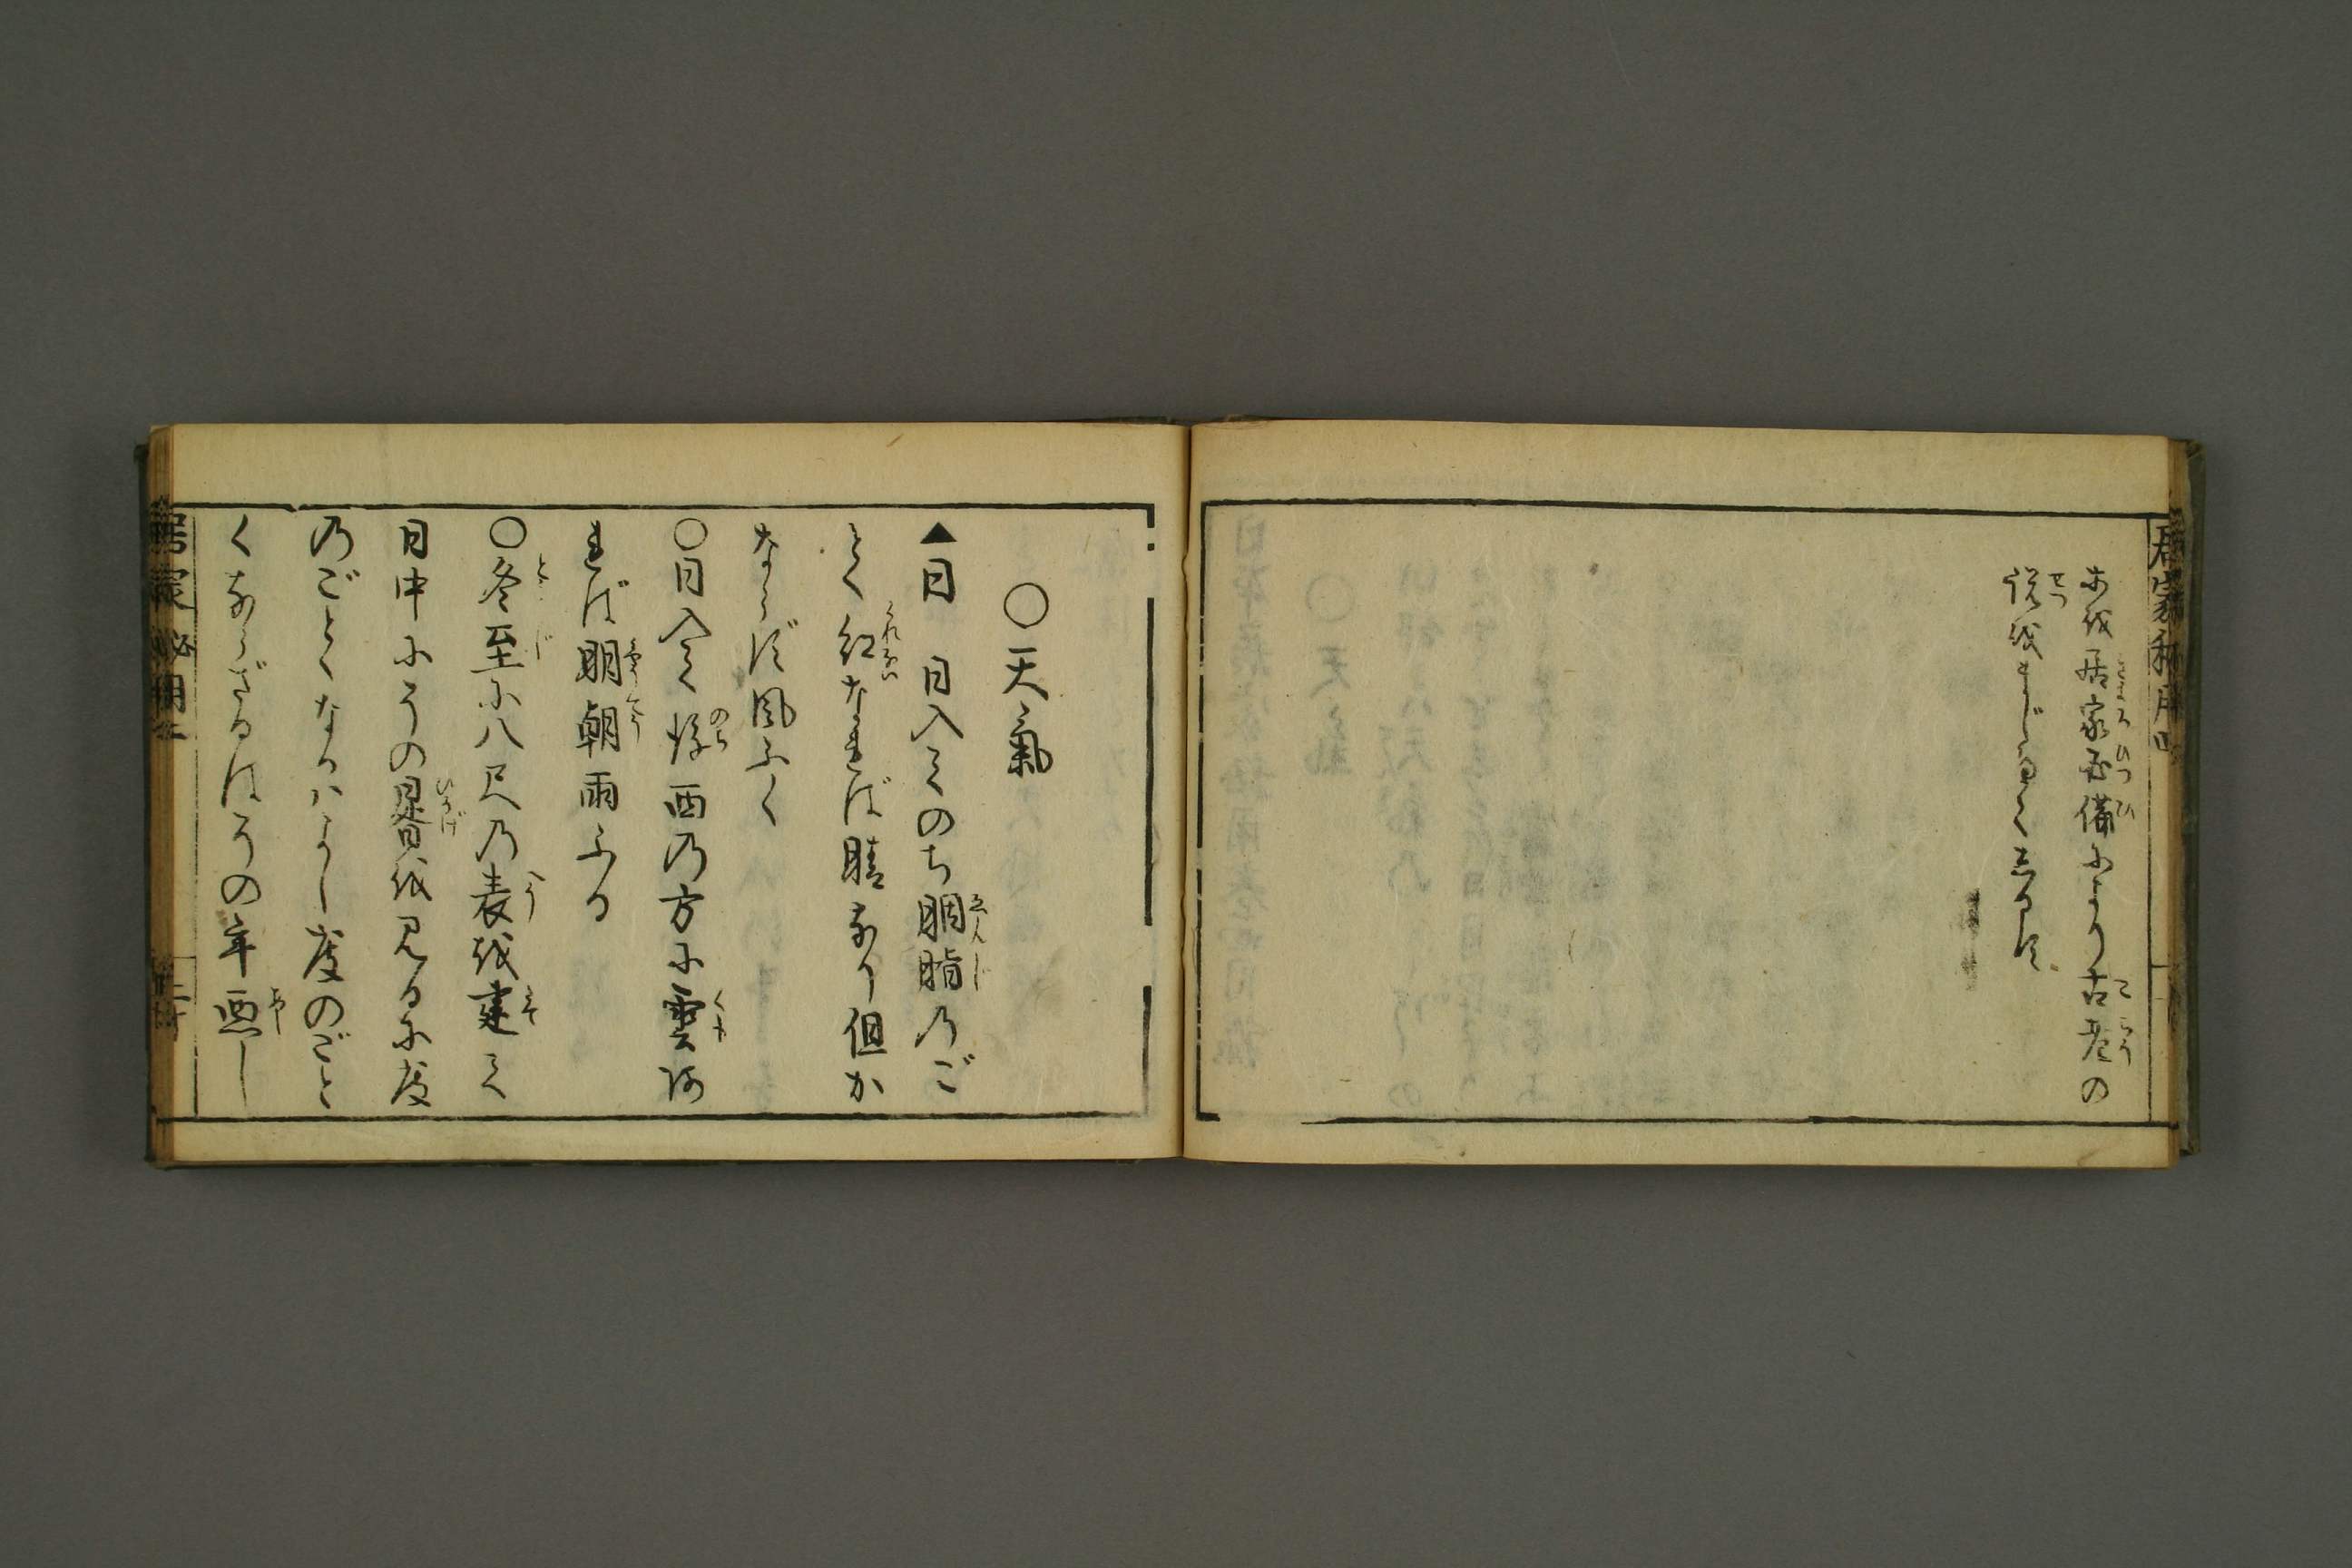 等を居家必備により古老の
説をまじへてしるす
○天氣
▲日　日入てのち胭脂のご
とく紅なれば晴なり但か
ならず風ふく
○日入て後西の方に雲あ
れば明朝雨ふる
○冬至に八尺の表を建て
日中にその晷を見るに度
のごとくなるハよし度のごと
くならざるはその年悪し